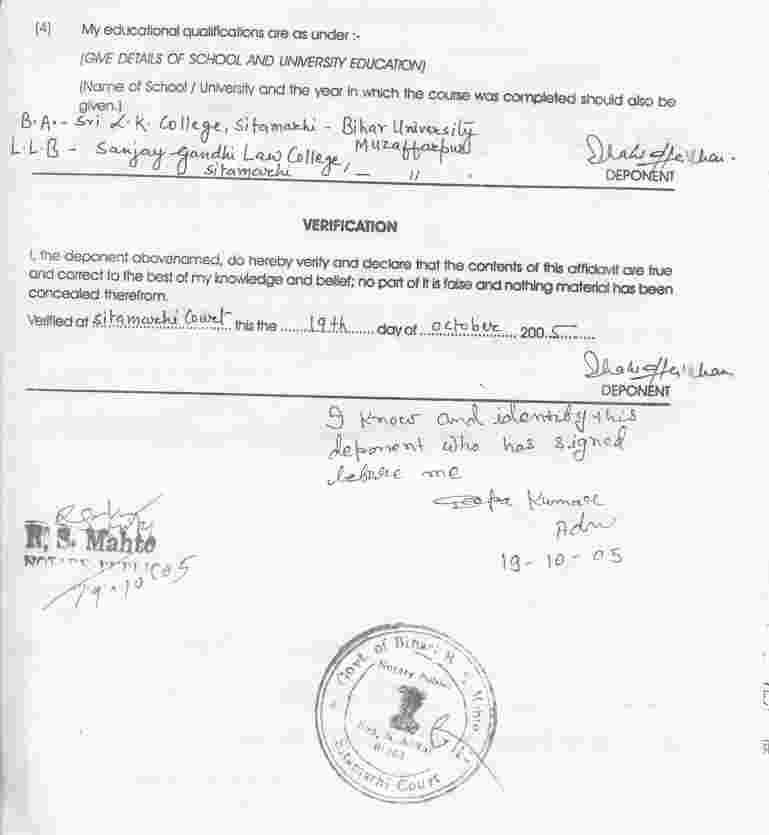 (4) My educational qualifications are as under :-
(GIVE DETAILS OF SCHOOL AND UNIVERSITY EDUCATION)
(Name of School / University and the year in which the course was completed should also be
given.)
B.A. - Sri L.K. College, Sitamarhi - Bihar University
Muzaffarpur
L.L.B - Sanjay Gandhi Law College,
Sitamarhi — 〃
DEPONENT
VERIFICATION
I, the deponent abovenamed, do hereby verify and declare that the contents of this affidavit are true
and correct to the best of my knowledge and belief; no part of it is false and nothing material has been
concealed therefrom.
Verified at Sitamarhi Court this the 19th day of october 2005
DEPONENT
I know and identify this
deponent who has signed
before me
Kumar
Adv
19-10-05
R. S. Mahto
NOTARY PUBLIC
19-10-05
Govt. of Bihar R. S. Mahto
Notary Public
Sitamarhi Court